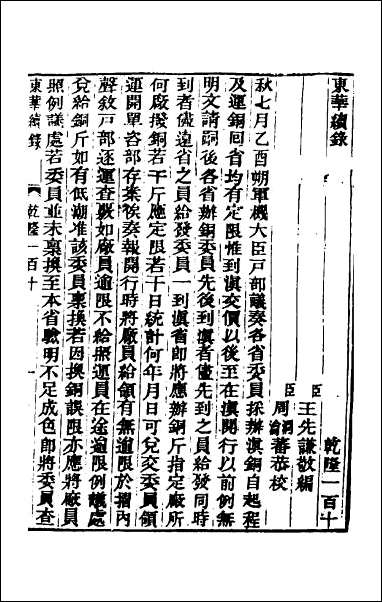 東華續錄
乾隆一百十
臣王先謙敬編
臣周
蕃恭校
秋七月乙酉朔軍機大臣戸部議奏各省委員採辦滇銅自起程
及運銅囘省均有定限惟到滇交價以後至在滇開行以前例無
明文請嗣後各省辦銅委員先後到滇者儘先到之員給發同時
到者儘遠省之員給發委員一到滇省即將應辦銅斤指定廠所
何廠撥銅若干斤應定限若干日統計何年月日可兌交委員領
運開單咨部存案俟奏報開行時將廠員給領有無逾限於摺內
聲敘戸部逐運查覈如廠員逾限不給照運員在途逾限例議處
兌給銅斤如有低潮准該委員稟換若因換銅誤限亦應將廠員
照例議處若委員並未稟換至本省驗明不足成色即將委員查
東華續錄
乾隆一百十
一